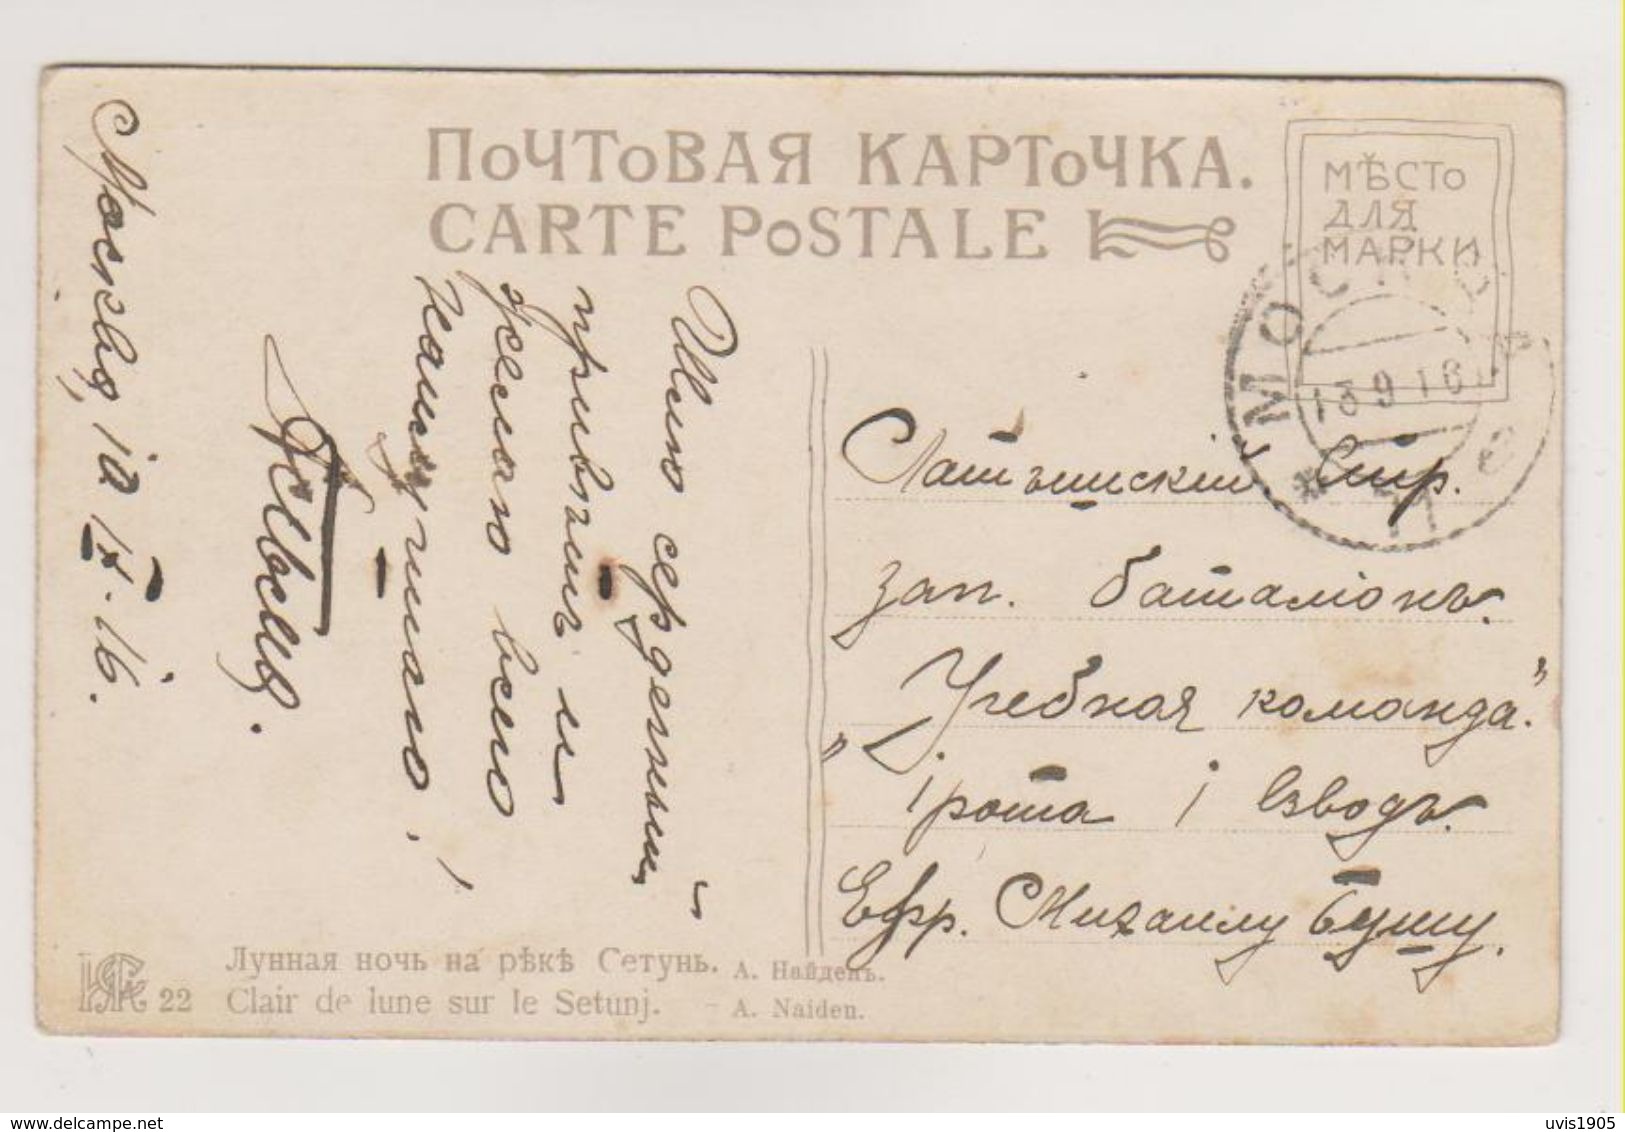 ПОЧТОВАЯ КАРТОЧКА.
CARTE POSTALE
МѢСТО
ДЛЯ
МАРКИ
МОСКВА
13 9 16
Москва, 12 IX. 16.
Шлю сердечный
привѣтъ и
желаю всего
наилучшаго!
Латышскій Стр.
зап. баталіонъ.
„Учебная команда."
1 рота 1 взводъ.
Ефр. Михаилу Бушу.
22 Лунная ночь на рѣкѣ Сетунь. А. Найденъ.
Clair de lune sur le Setunj. - A. Naiden.
uvis1905